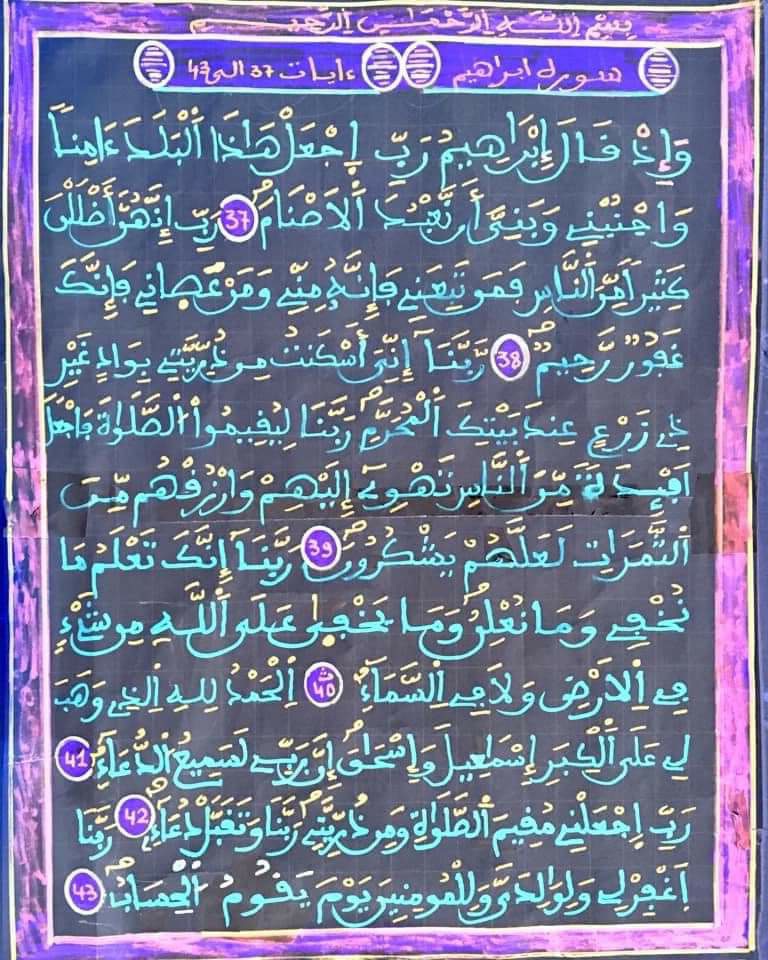 بِسْمِ اللَّهِ الرَّحْمَانِ الرَّحِيمِ
سورة ابراهيم ءايات 37 الى 43
وَإِذْ قَالَ إِبْرَاهِيمُ رَبِّ اِجْعَلْ هَاذَا اَلْبَلَدَ ءَامِناً
وَاجْنُبْنِي وَبَنِيَّ أَن نَّعْبُدَ اَلَاصْنَامَ 37 رَبِّ إِنَّهُنَّ أَضْلَلْنَ
كَثِيراً مِّنَ اَلنَّاسِ فَمَن تَبِعَنِي فَإِنَّهُ مِنِّي وَمَنْ عَصَانِي فَإِنَّكَ
غَفُورٌ رَّحِيمٌ 38 رَّبَّنَا إِنِّيَ أَسْكَنتُ مِن ذُرِّيَّتِي بِوَادٍ غَيْرِ
ذِي زَرْعٍ عِندَ بَيْتِكَ اَلْمُحَرَّمِ رَبَّنَا لِيُقِيمُوا اُلصَّلَوٰةَ فَاجْعَلَ
اَفْـِٕدَةً مِّنَ اَلنَّاسِ تَهْوِي إِلَيْهِمْ وَارْزُقْهُم مِّنَ
اَلثَّمَرَاتِ لَعَلَّهُمْ يَشْكُرُونَ 39 رَبَّنَا إِنَّكَ تَعْلَمُ مَا
نُخْفِي وَمَا نُعْلِنُ وَمَا يَخْفَىٰ عَلَى اَللَّهِ مِن شَيْءٍ
فِي اِلَارْضِ وَلَا فِي اِلسَّمَاءِ 40 اِلْحَمْدُ لِلهِ اِلذِي وَهَبَ
لِي عَلَى اَلْكِبَرِ إِسْمَاعِيلَ وَإِسْحَاقَ إِنَّ رَبِّي لَسَمِيعُ اُلدُّعَاءِ 41
رَبِّ اِجْعَلْنِي مُقِيمَ اَلصَّلَوٰةِ وَمِن ذُرِّيَّتِي رَبَّنَا وَتَقَبَّلْ دُعَاءِ 42 رَبَّنَا
اَغْفِرْ لِي وَلِوَالِدَيَّ وَلِلْمُومِنِينَ يَوْمَ يَقُومُ اُلْحِسَابُ 43